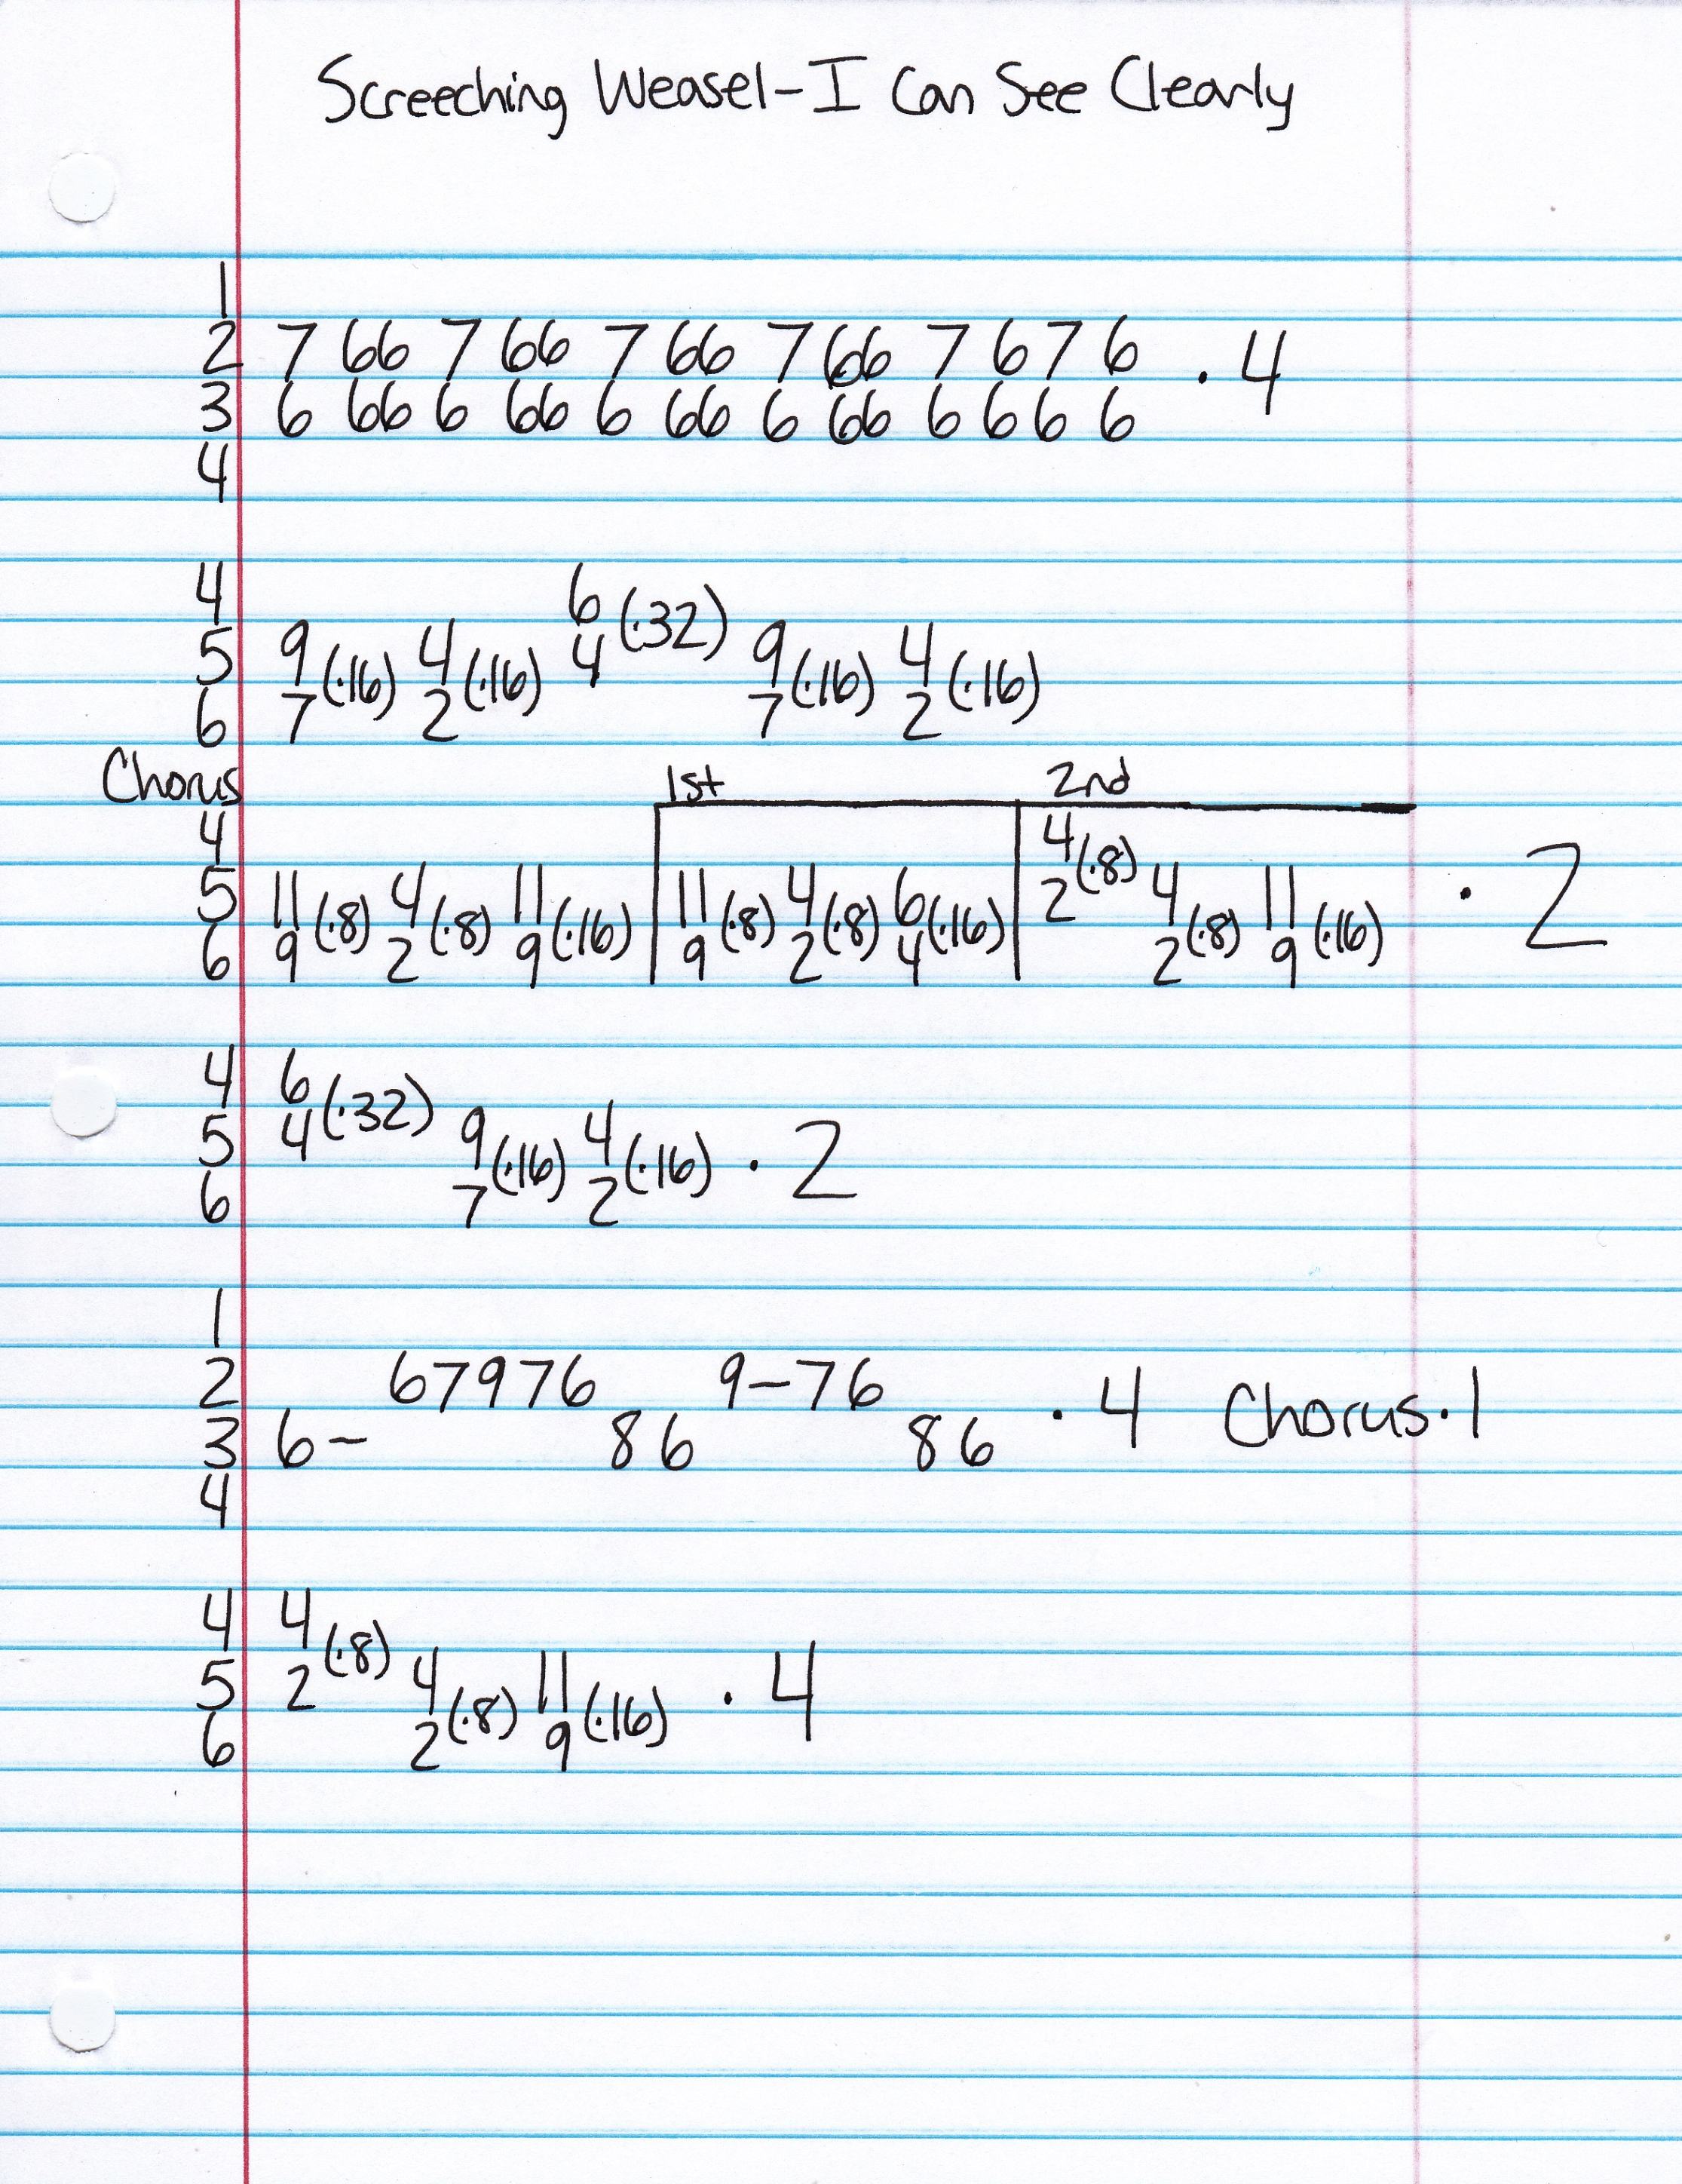 Screeching Weasel-I Can See Clearly
1
2 7 66 7 66 7 66 7 66 7 6 7 6 · 4
3 6 66 6 66 6 66 6 66 6 6 6 6
4
4 6 (·32)
5 9 (·16) 4 (·16) 4 9 (·16) 4 (·16)
6 7 2 7 2
Chorus 1st 2nd
4 4 (·8)
5 11 (·8) 4 (·8) 11 (·16) 11 (·8) 4 (·8) 6 (·16) 2 4 (·8) 11 (·16) · 2
6 9 2 9 9 2 4 2 9
4 6 (·32)
5 4 9 (·16) 4 (·16) · 2
6 7 2
1
2 67976 9-76 · 4 Chorus·1
3 6- 86 86
4
4 4 (·8)
5 2 4 (·8) 11 (·16) · 4
6 2 9